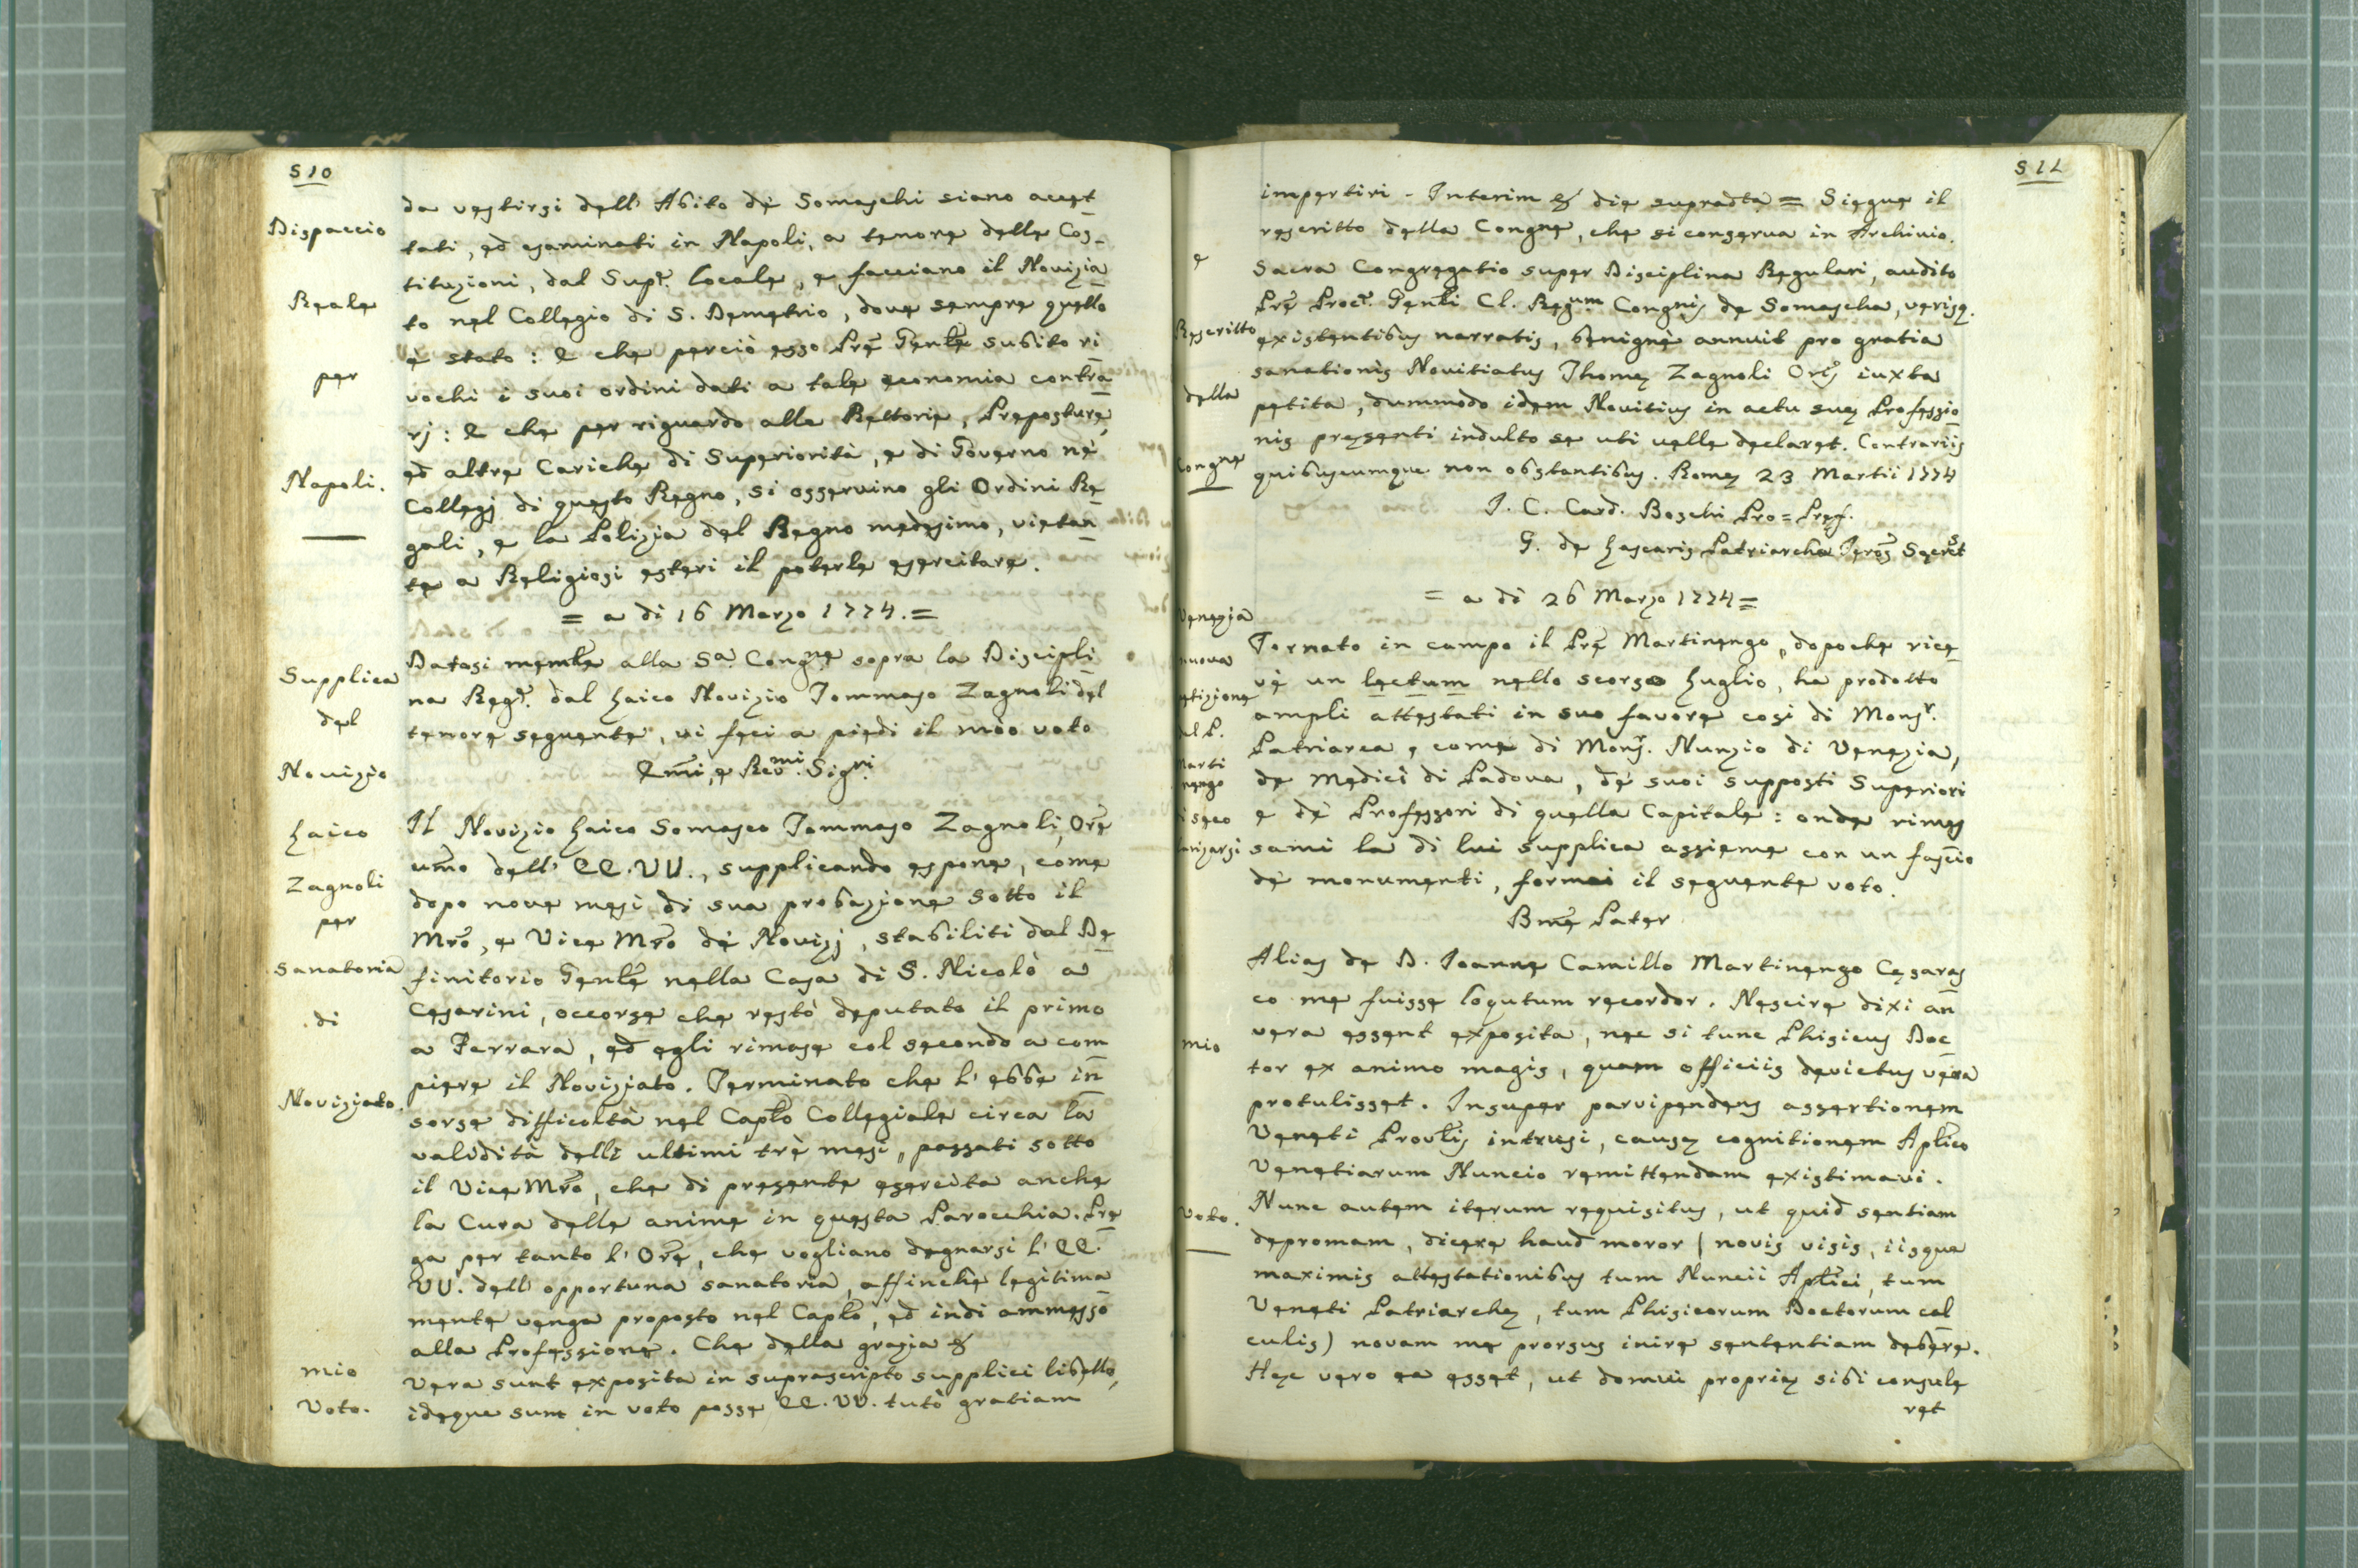 510
Dispaccio
Reale
per
Napoli.
da vestirsi dell' Abito de Somaschi siano acet
tati, ed esaminati in Napoli, a tenore delle Cos-
tituzioni, dal Supr. locale, e facciano il Novizia
to nel Collegio di S. Demetrio, dove sempre quello
è stato: E che perciò esso Pre Genle subito ri
vochi i suoi ordini dati a tale economia contra
rj: E che per riguardo alle Rettorie, Preposture,
ed altre Cariche di Superiorità, e di Governo nè
Collegj di questo Regno, si osservino gli Ordini Re
gali, e la Polizia del Regno medesimo, vietan
te a Religiosi esteri il poterle esercitare.
= a di 16 Marzo 1774. =
Supplica
del
Novizio
Laico
Zagnoli
per
sanatoria
di
Noviziato.
Datasi memle alla Sa. Congne sopra la Discipli
na Regr. dal Laico Novizio Tommaso Zagnoli del
tenore seguente, vi feci a piedi il mio voto
Emi, e Revmi. Signi.
Il Novizio Laico Somasco Tommaso Zagnoli, Ore
umo dell' EE.VV., supplicando espone, come
dopo nove mesi di sua probazione sotto il
Mro, e Vice Mro dè Novizj, stabiliti dal De
finitorio Genle nella Casa di S. Nicolò a
Cesarini, occorse che restò deputato il primo
a Ferrara, ed egli rimase col secondo a com
piere il Noviziato. Terminato che l' ebbe in
sorse difficoltà nel Caplo Collegiale circa la
validità delli ultimi trè mesi, passati sotto
il Vice Mro, che di presente esercita anche
la Cura delle anime in questa Parocchia. Pre
ga per tanto l' Ore, che vogliano degnarsi l' EE.
VV. dell' opportuna sanatoria, affinchè legitima
mente venga proposto nel Caplo, ed indi ammesso
alla Professione. Che della grazia &
mio
Voto.
Vera sunt exposita in suprascripto supplici libello,
ideque sum in voto posse EE. VV. tutò gratiam
511
impertiri - Interim & die supradta = Siegue il
rescritto della Congne, che si conserva in Archivio.
e
Rescritto
della
Congne
Sacra Congregatio super Disciplina Regulari, audito
Pre Procr. Genli Cl. Regum Congnis de Somascha, verisq.
existentibus narratis, benignè annuit pro gratia
sanationis Novitiatus Thomę Zagnoli Oris iuxta
petita, dummodo idem Novitius in actu suę Professio
nis pręsenti indulto se uti velle declaret. Contrariis
quibuscumque non obstantibus. Romę 23 Martii 1774
I. C. Card. Boschi Pro=Pręf.
G. de Lascaris Patriarcha Ieros Secret
= a dì 26 Marzo 1774 =
Venezia
nuova
etizione
del P.
Marti
nengo
Tornato in campo il Pre Martinengo, dopoche rice
vè un lectum nello scorso Luglio, ha prodotto
ampli attestati in suo favore così di Monsr.
Patriarca, come di Monsr. Nunzio di Venezia,
de Medici di Padova, dè suoi supposti Superiori
e dè Professori di quella Capitale: onde rimes
sami la di lui supplica assieme con un fascio
dè monumenti, formai il seguente voto.
Bme Pater
mio
Voto.
Alias de D. Ioanne Camillo Martinengo Cęsares
co me fuisse loqutum recordor. Nescire dixi an
vera essent exposita, nec si tunc Phisicus Doc
tor ex animo magis, quam officiis devictus vera
protulisset. Insuper parvipendens assertionem
Veneti Provlis intrusi, causę cognitionem Aplico
Venetiarum Nuncio remittendam existimavi.
Nunc autem iterum requisitus, ut quid sentiam
depromam, dicere haud moror (novis visis, iisque
maximis attestationibus tum Nuncii Aplici, tum
Veneti Patriarchę, tum Phisicorum Doctorum cal
culis) novam me prorsus inire sententiam debere.
Hęc vero ea esset, ut domui proprię sibi consule
ret